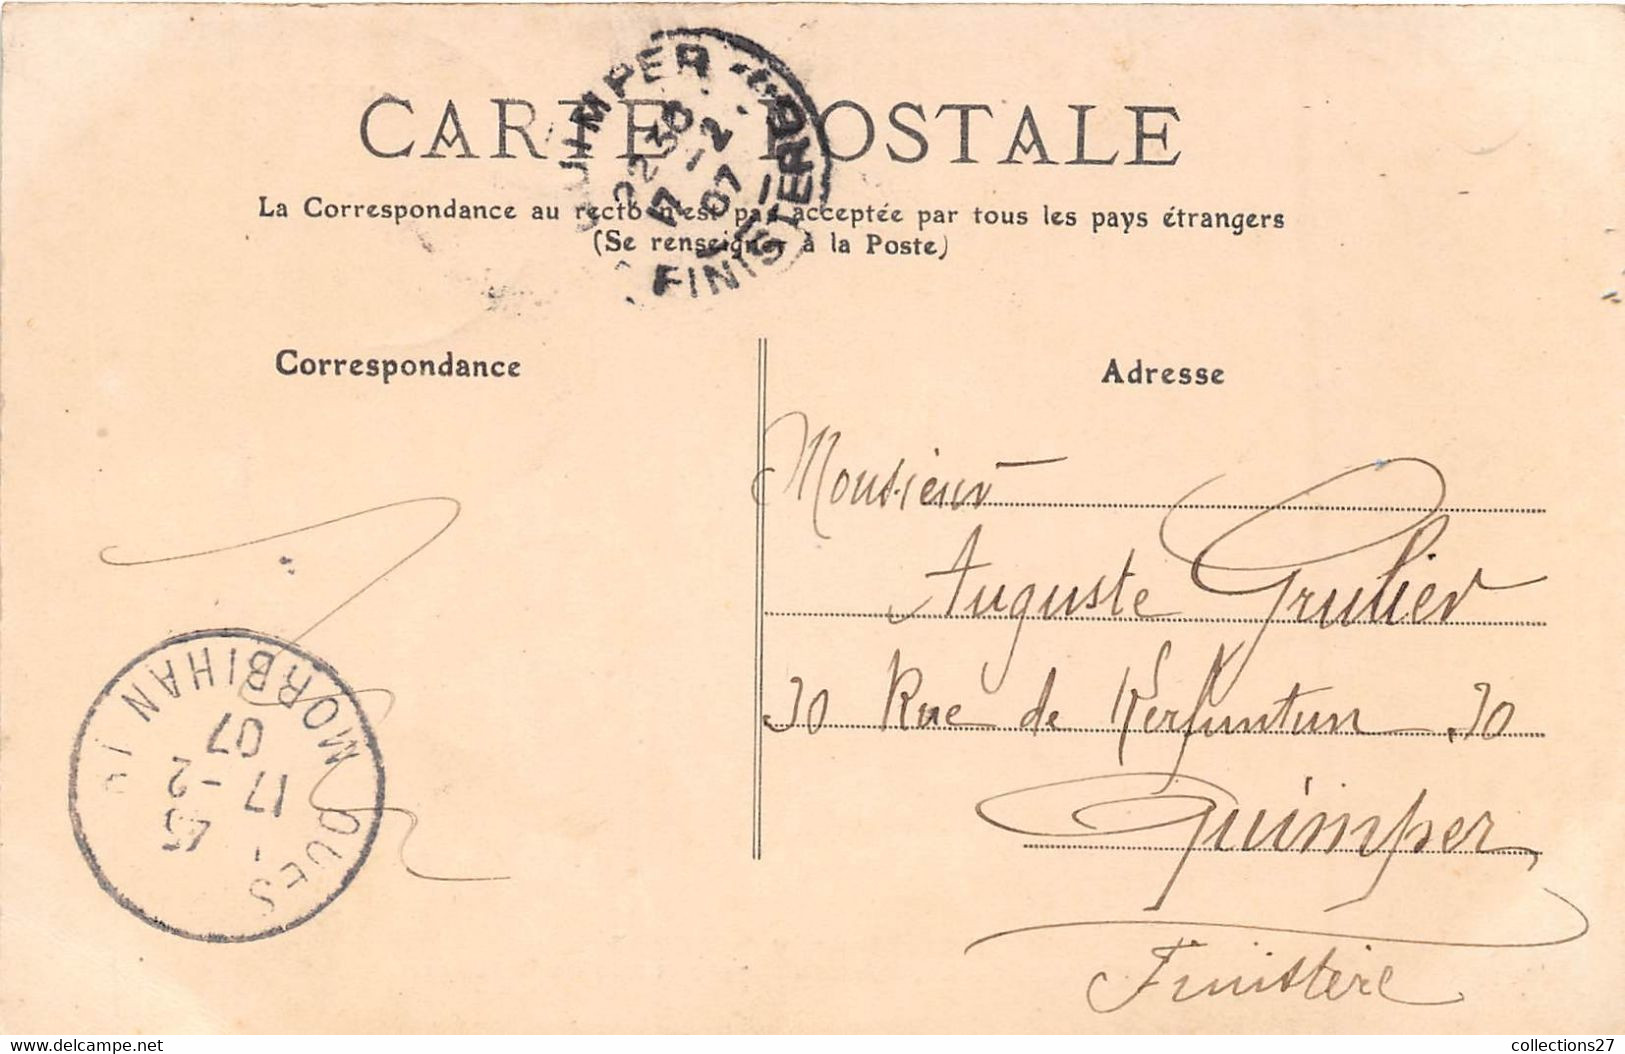 CARTE POSTALE
La Correspondance au recto n'est pas acceptée par tous les pays étrangers
(Se renseigner à la Poste)
QUIMPER
22 30
17 - 2
07
FINISTERE
Correspondance
Adresse
Monsieur
Auguste Grulier
30 Rue de Kerfuntun 30
Quimper
Finistère
MORBIHAN
17 - 2
07
delcampe.net
collections27